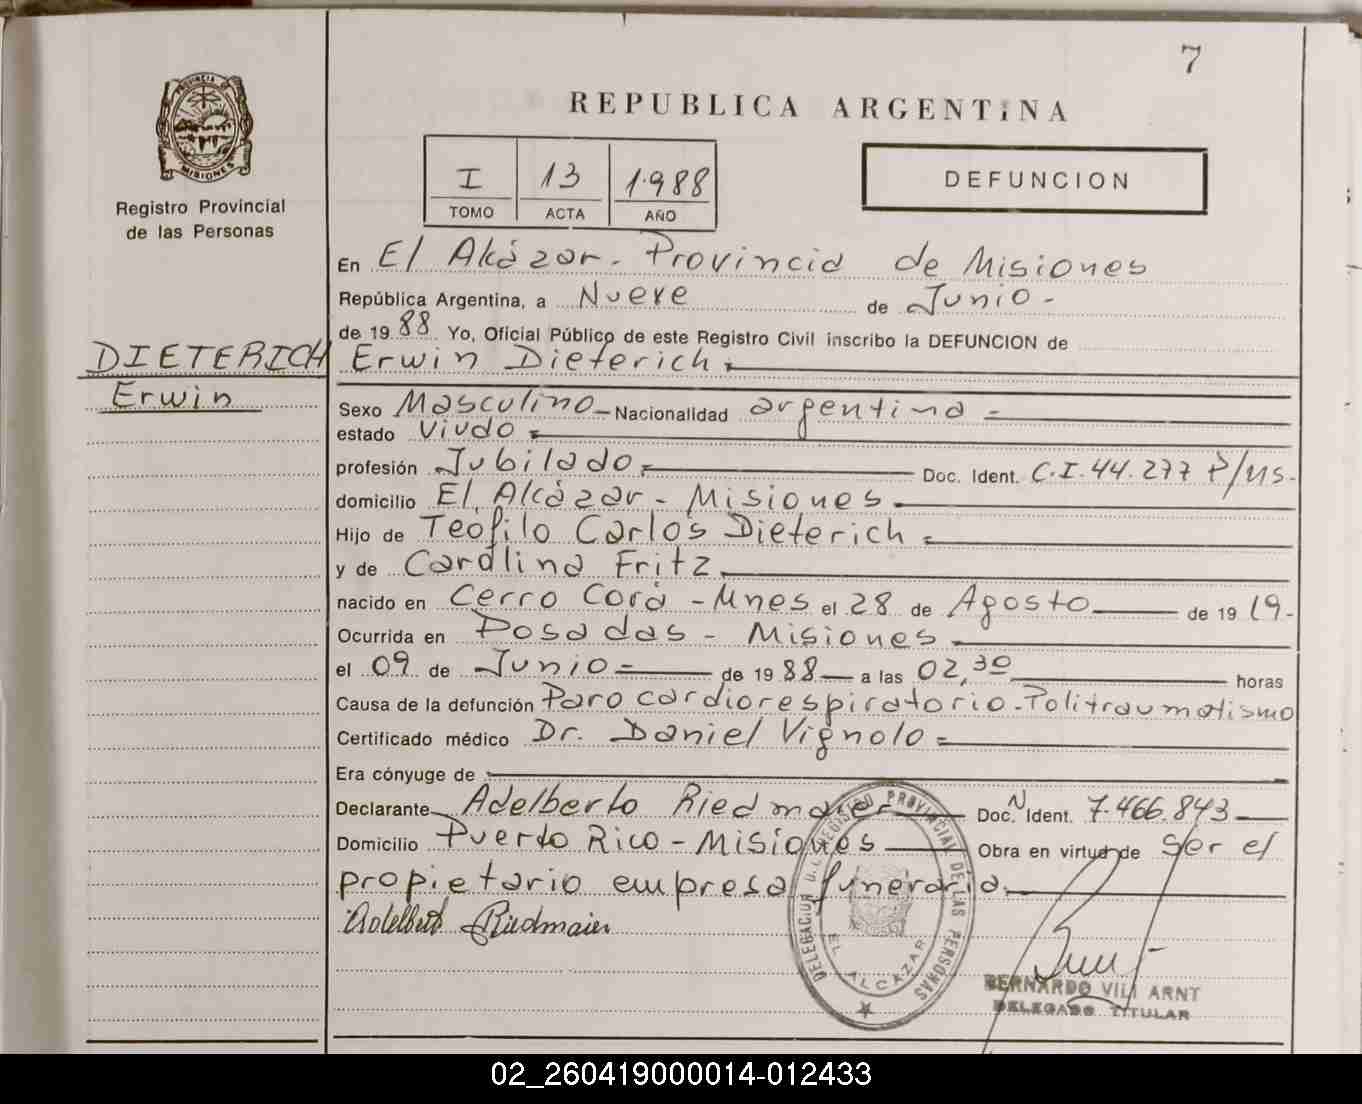 7
PROVINCIA DE
MISIONES
Registro Provincial
de las Personas
REPUBLICA ARGENTINA
I 13 1.988
TOMO ACTA AÑO
DEFUNCION
En El Alcázar. Provincia de Misiones
República Argentina, a Nueve de Junio -
de 19 88 Yo, Oficial Público de este Registro Civil inscribo la DEFUNCION de
DIETERICH
Erwin
Erwin Dieterich.
Sexo Masculino - Nacionalidad argentina =
estado Viudo =
profesión Jubilado. Doc. Ident. C.I. 44.277 P/MS.
domicilio El Alcázar - Misiones
Hijo de Teofilo Carlos Dieterich =
y de Carolina Fritz
nacido en Cerro Corá - Mnes el 28 de Agosto de 19 19-
Ocurrida en Posadas - Misiones
el 09 de Junio = de 19 88 a las 02,30 horas
Causa de la defunción Paro cardiorespiratorio - Politraumatismo
Certificado médico Dr. Daniel Vignolo =
Era cónyuge de
Declarante Adelberto Riedmaier Doc. N Ident. 7.466.843
Domicilio Puerto Rico - Misiones Obra en virtud de Ser el
propietario empresa funeraria
Adelberto Riedmaier
REGISTRO PROVINCIAL DE LAS PERSONAS
DELEGACION
EL ALCAZAR
BERNARDO VILI ARNT
DELEGADO TITULAR
02_260419000014-012433